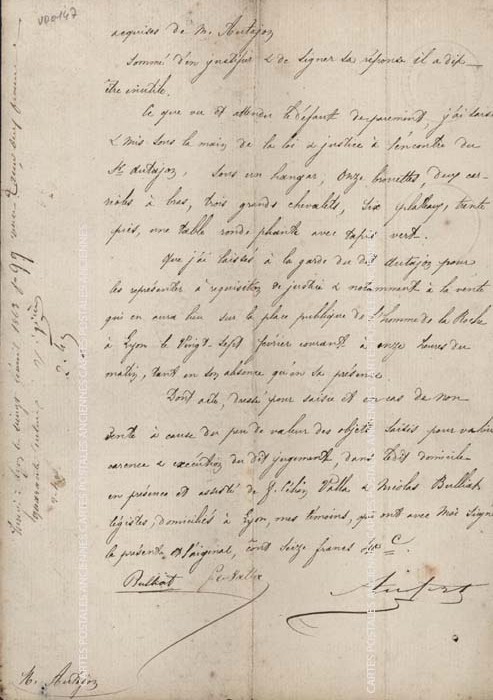 VD0147
acquises de M. Autajon
Sommé d'en justifier & de signer sa réponse il a dit
être inutile.
Ce que vu et attendu le défaut de paiement, j'ai saisi
& mis sous la main de la loi & justice à l'encontre du
Sr Autajon, sous un hangar, onze brouettes, deux car-
rioles à bras, trois grands chevalets, six plateaux, trente
pieds, une table ronde pliante avec tapis vert.
Que j'ai laissés à la garde du dit Autajon pour
les représenter à réquisition de justice & notamment à la vente
qui en aura lieu sur la place publique de l'homme de la Roche
à Lyon le vingt sept février courant à onze heures du
matin, tant en son absence qu'en sa présence.
Dont acte, dressé pour saisie et en cas de non
vente à cause du peu de valeur des objets saisis pour valoir
carence & exécution du dit jugement, dans le dit domicile
en présence et assisté de J. Vatta & Nicolas Bulliat
légistes, domiciliés à Lyon, mes témoins, qui ont avec moi signé
la présente & l'original, coût seize francs
Bulliat
M. Autajon
à Lyon le vingt février 1862 f° 99
quarante centimes
CARTES POSTALES ANCIENNES CARTES POSTALES ANCIENNES